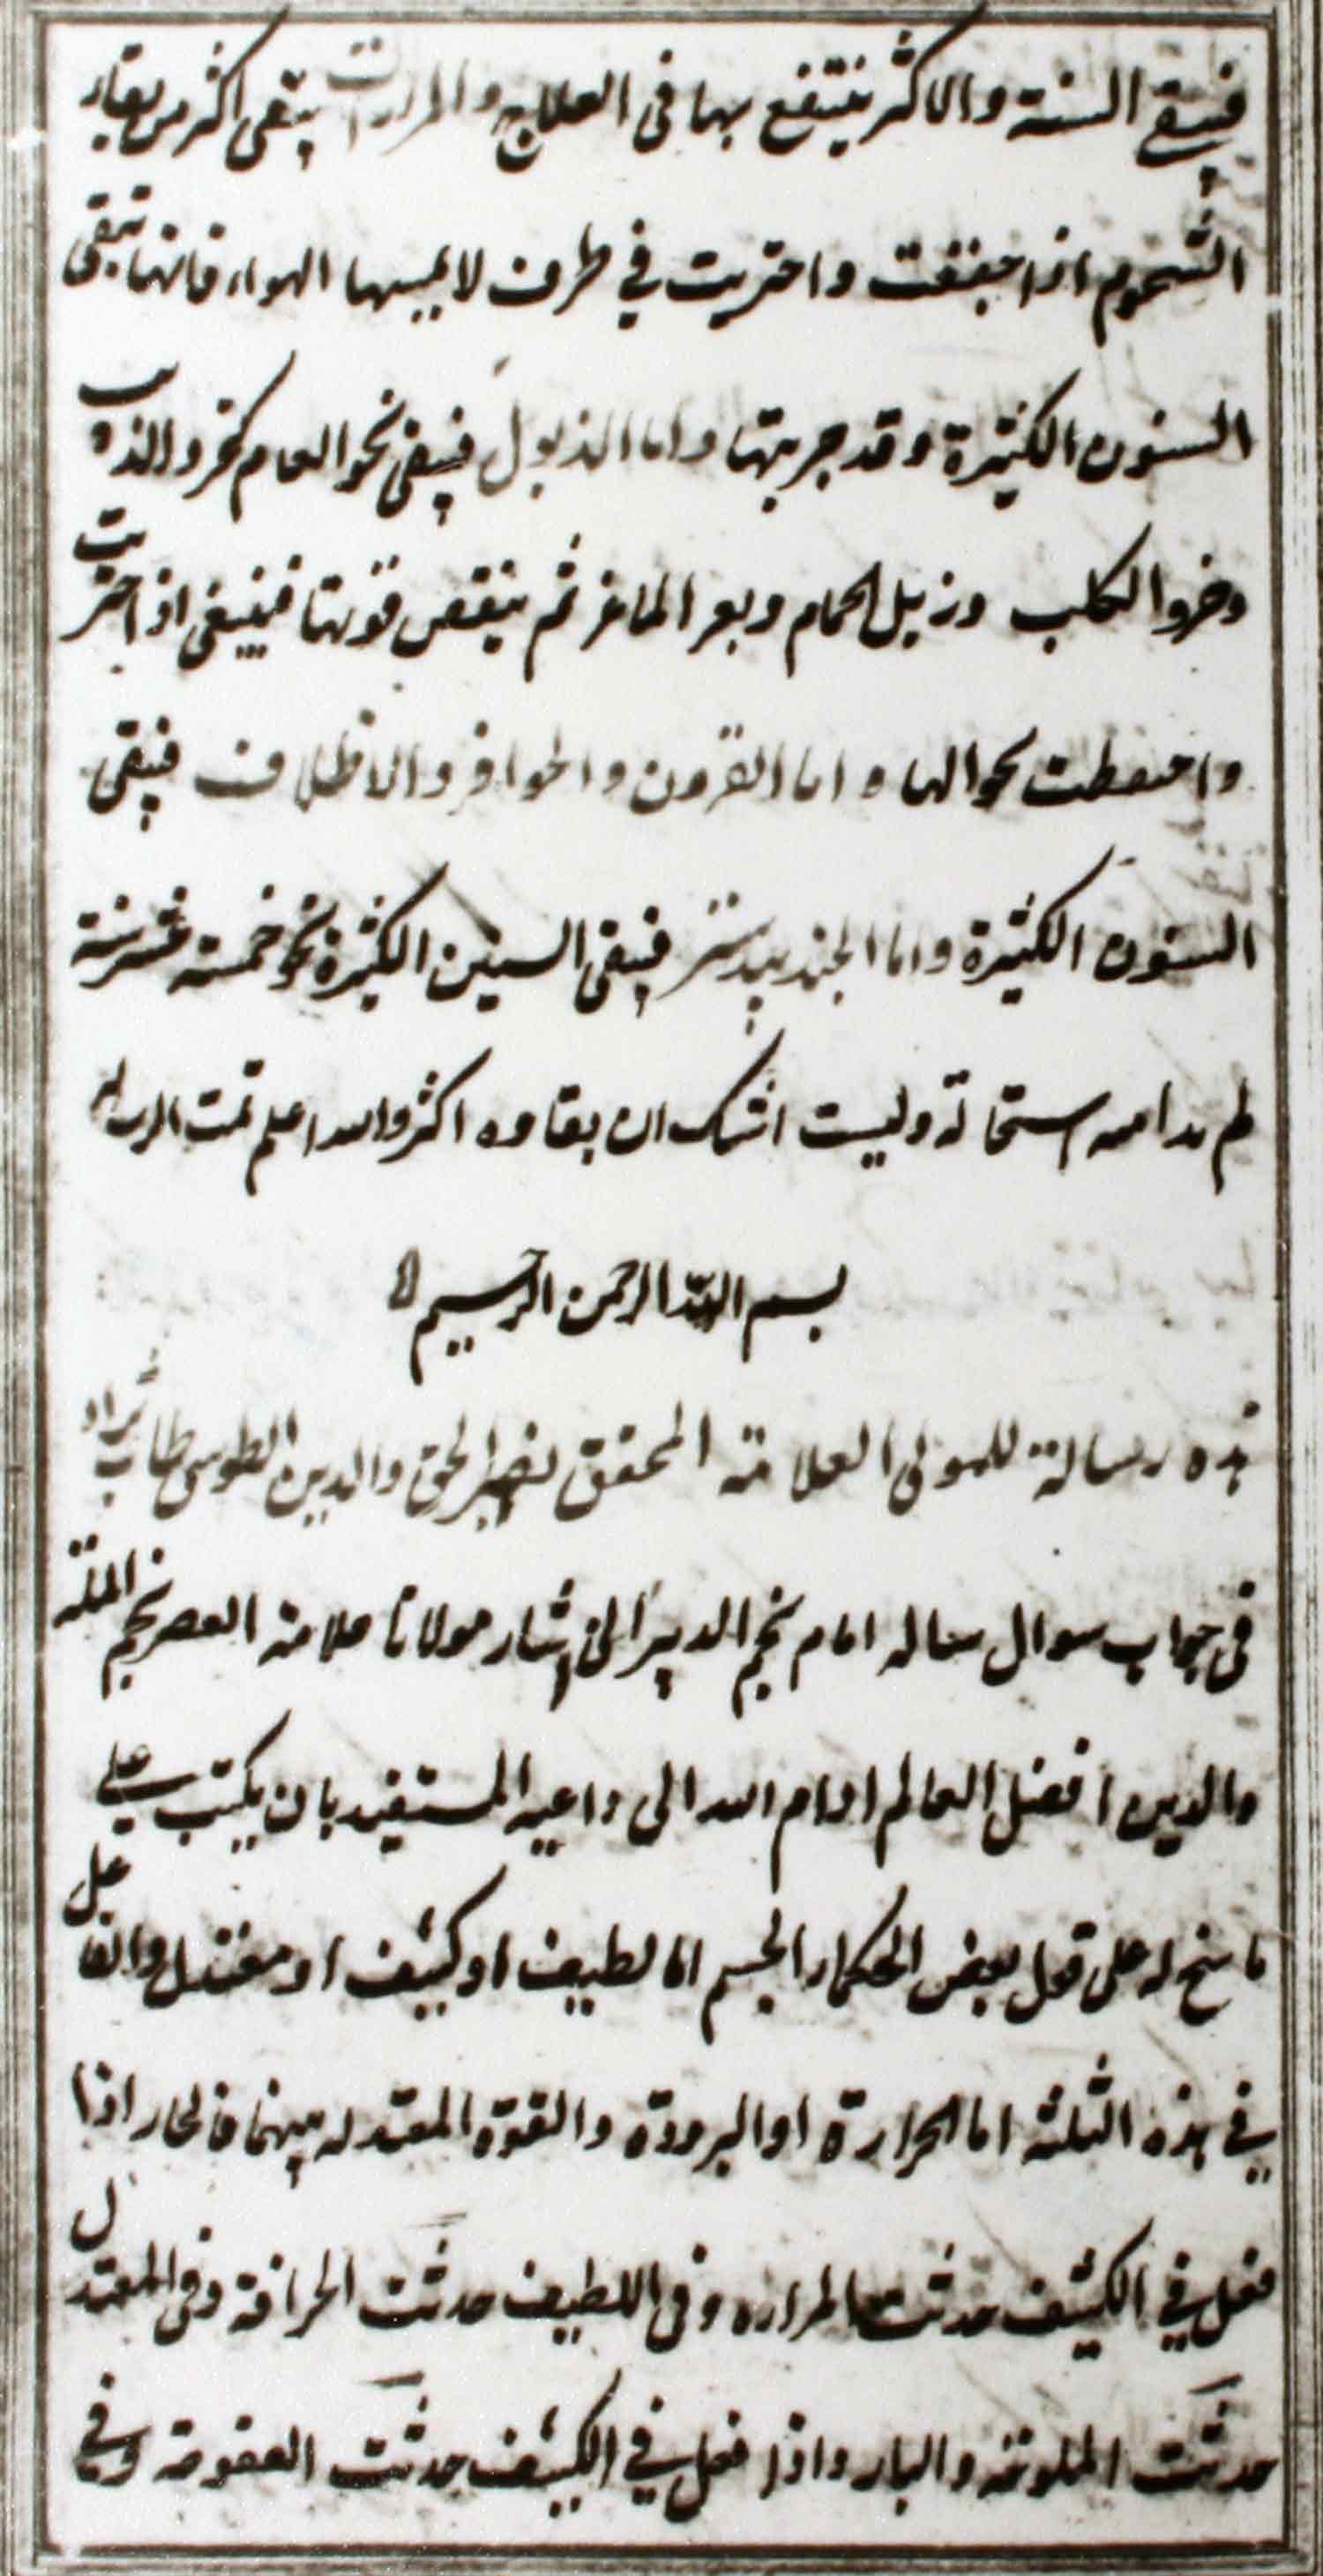 فيبقى السنة والاكثر ينتفع بها فى العلاج والمرارات يبقى اكثر من بقاء
الشحوم اذا جففت واحتريت في ظرف لا يمسها الهواء فانها تبقى
السنون الكثيرة وقد جربتها واما الذبول فيبقى نحو العام كخرو الذيب
وخرو الكلب وزبل الحمام وبعر الماعز ثم ينقص قوتها فينبغى اذا احتريت
واحتفظت بحوالها ه اما القرون والحوافر والاظلاف فيبقى
السنون الكثيرة واما الجندبيدستر فيبقى السنين الكثيرة نحو خمسة عشر سنة
لم استحالة وليست اشك ان بقاوه اكثر والله اعلم تمت الرساله
بسم اللّه الرحمن الرحيم
هذه رسالة للمولى العلامة المحقق نصير الحق والدين الطوسى طاب ثراه
فى جواب سوال ساله امام نجم الدين اشار مولانا علامة العصر نجم الملة
والدين افضل العالم ادام الله الى داعيه المستفيد بان يكتب على
ما سنح له على قول بعض الحكماء الجسم اما لطيف او كثيف او معتدل والفاعل
في هذه الثلثة اما الحرارة او البرودة والقوة المعتدله بينهما فالحار اذا
فعل في الكثيف حدثت المراره وفى اللطيف حدثت الحرافة وفى المعتدل
حدثت الملوحة والبارد اذا فعل في الكثيف حدثت العفوصة وفي